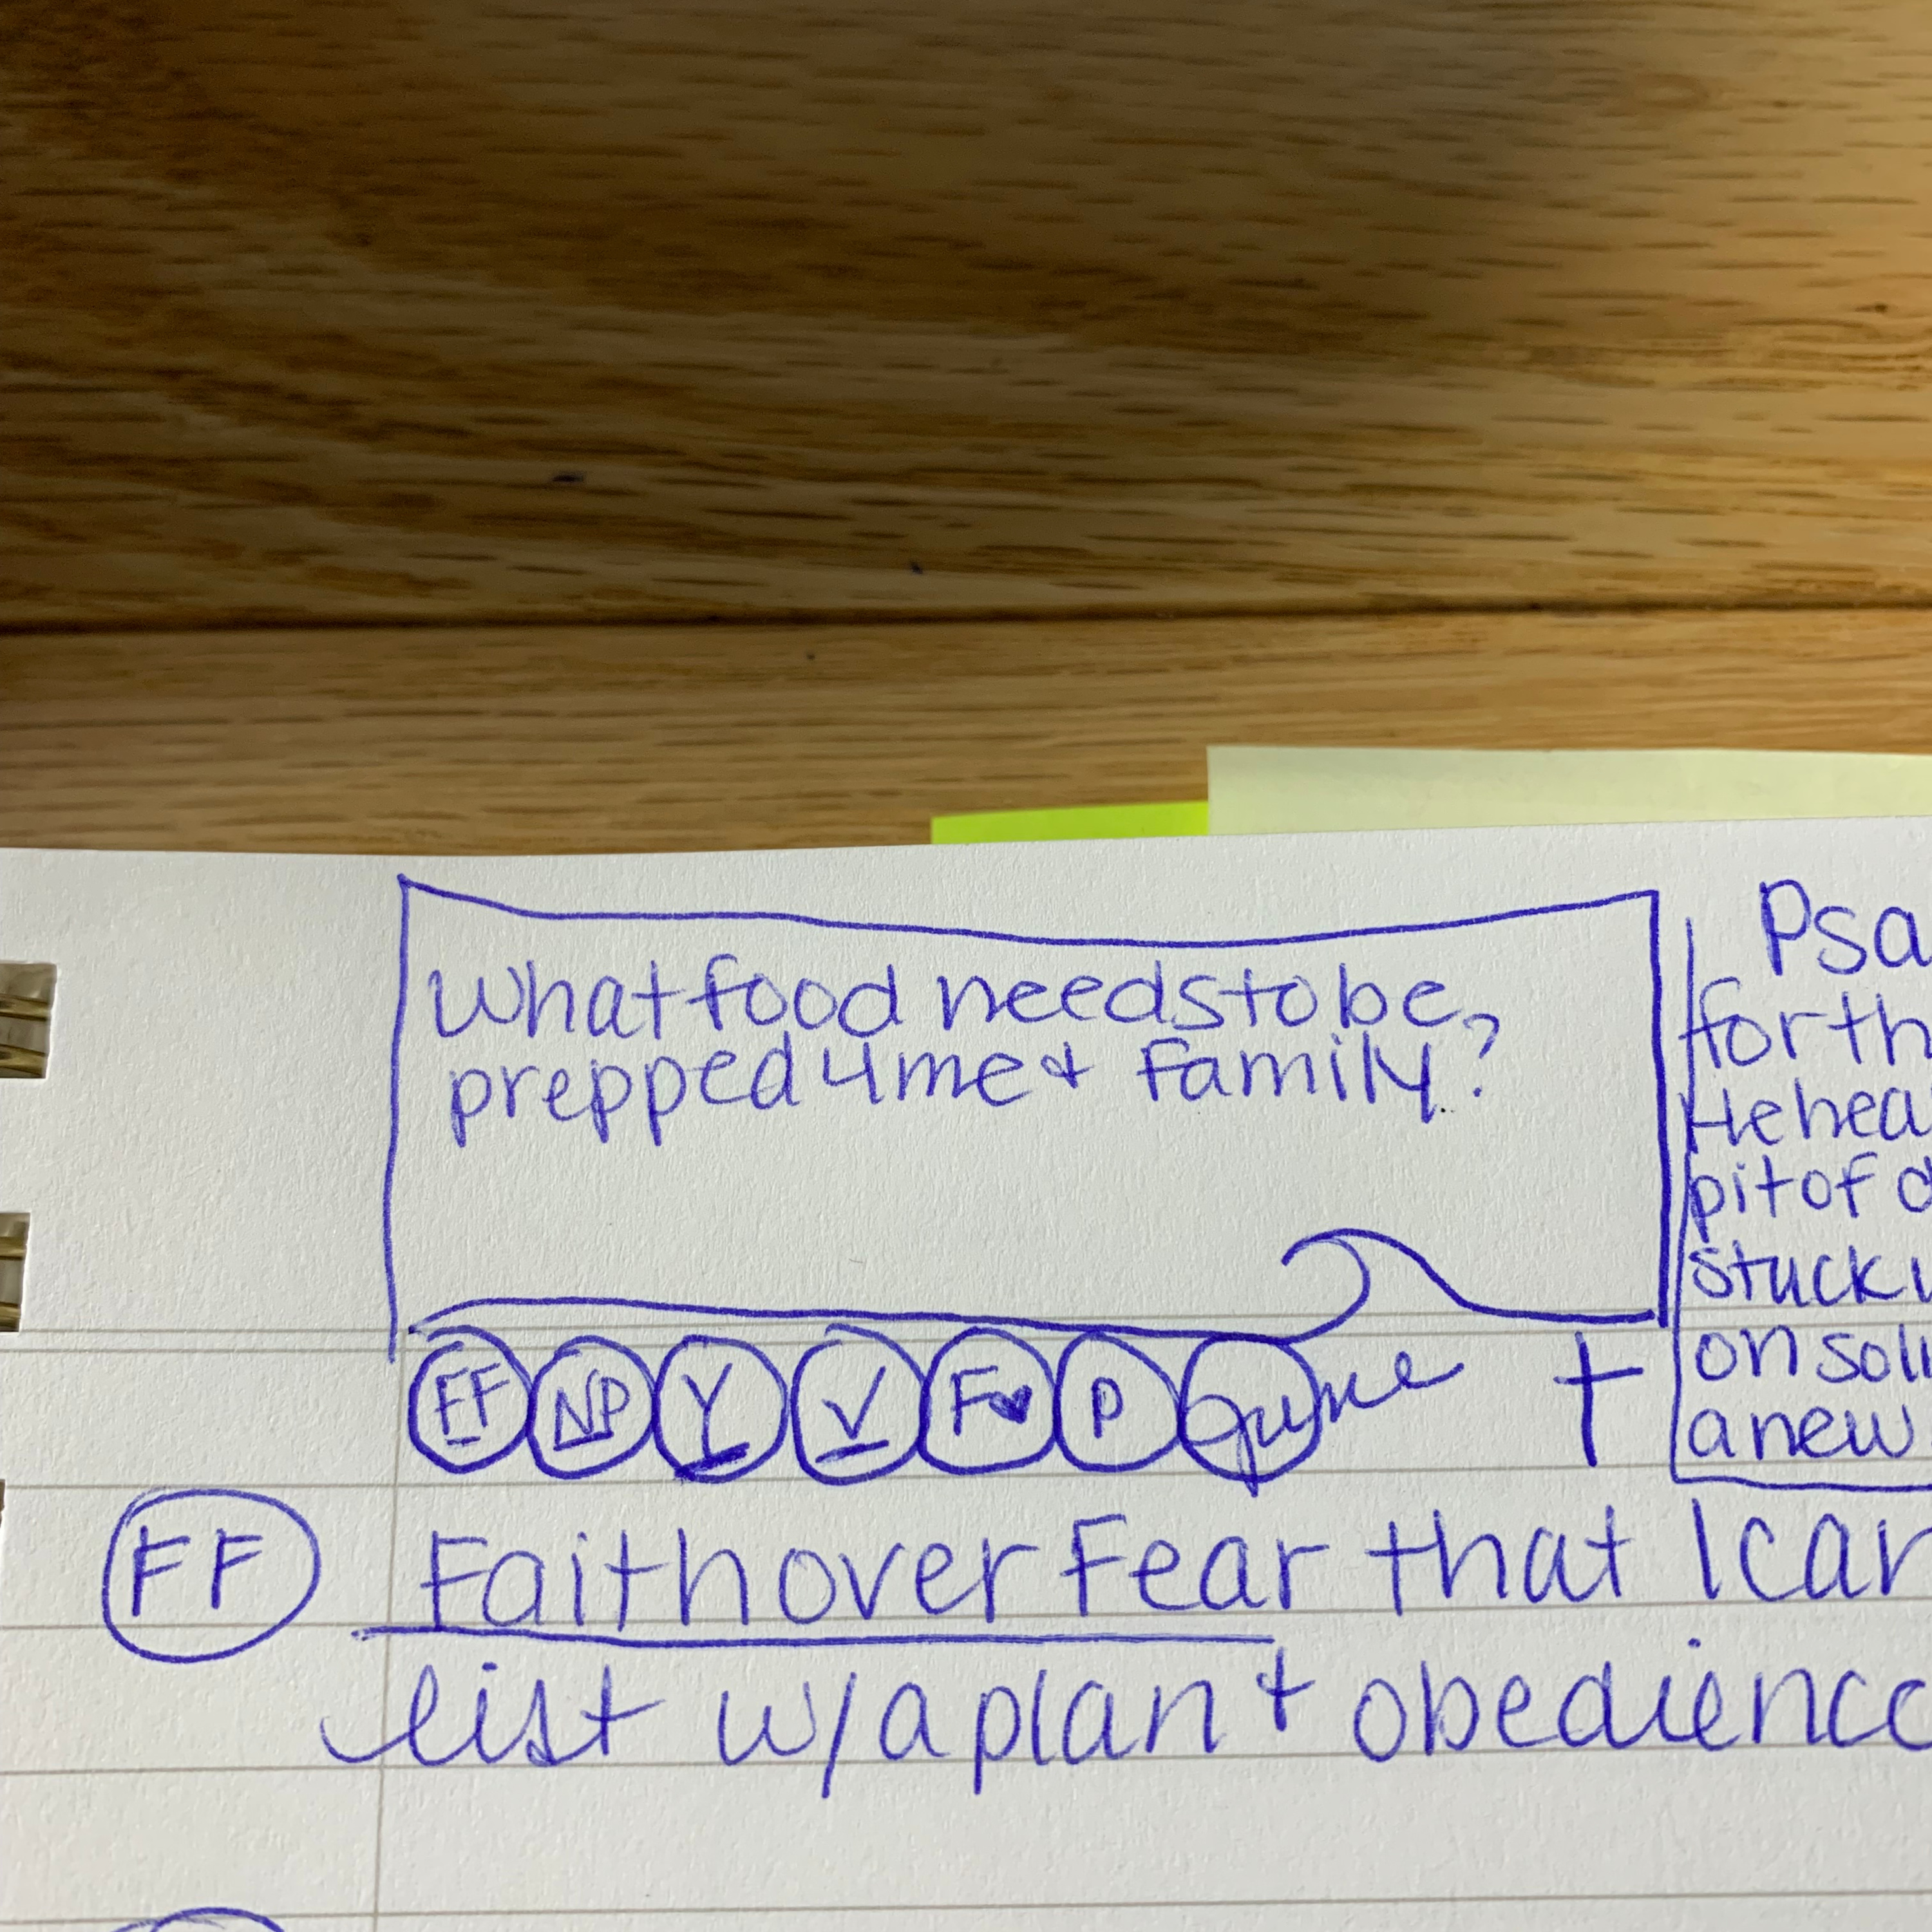 What food needs to be
prepped 4 me & family?
FF NP Y V F♥ P
Psa
for th
He hea
pit of d
stuck i
on soli
a new
FF Faith over Fear that I can
list w/ a plan & obedience